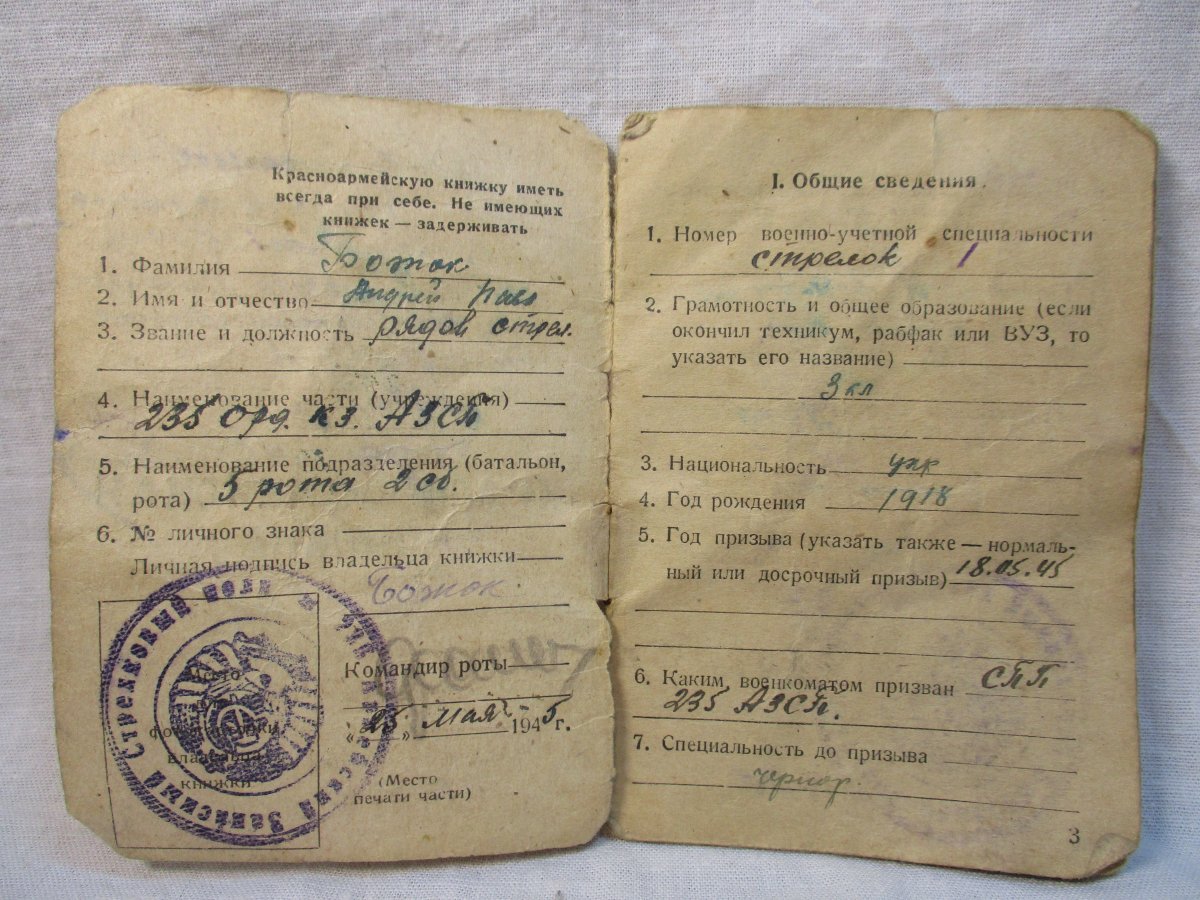 Красноармейскую книжку иметь
всегда при себе. Не имеющих
книжек — задерживать
1. Фамилия Божок
2. Имя и отчество Андрей
3. Звание и должность рядов стрел.
4. Наименование части (учреждения)
235 Орд. кз. АЗСП
5. Наименование подразделения (батальон,
рота) 5 рота 2 сб.
6. № личного знака
Личная подпись владельца книжки
Божок
Место
для
фотокарточки
владельца
книжки
Стрелковый полк
Запасный
Командир роты
«25» мая 1945 г.
(Место
печати части)
I. Общие сведения.
1. Номер военно-учетной специальности
стрелок 1
2. Грамотность и общее образование (если
окончил техникум, рабфак или ВУЗ, то
указать его название)
3 кл
3. Национальность укр
4. Год рождения 1918
5. Год призыва (указать также — нормаль-
ный или досрочный призыв) 18.05.45
6. Каким военкоматом призван СПП
235 АЗСП.
7. Специальность до призыва
чернор.
3